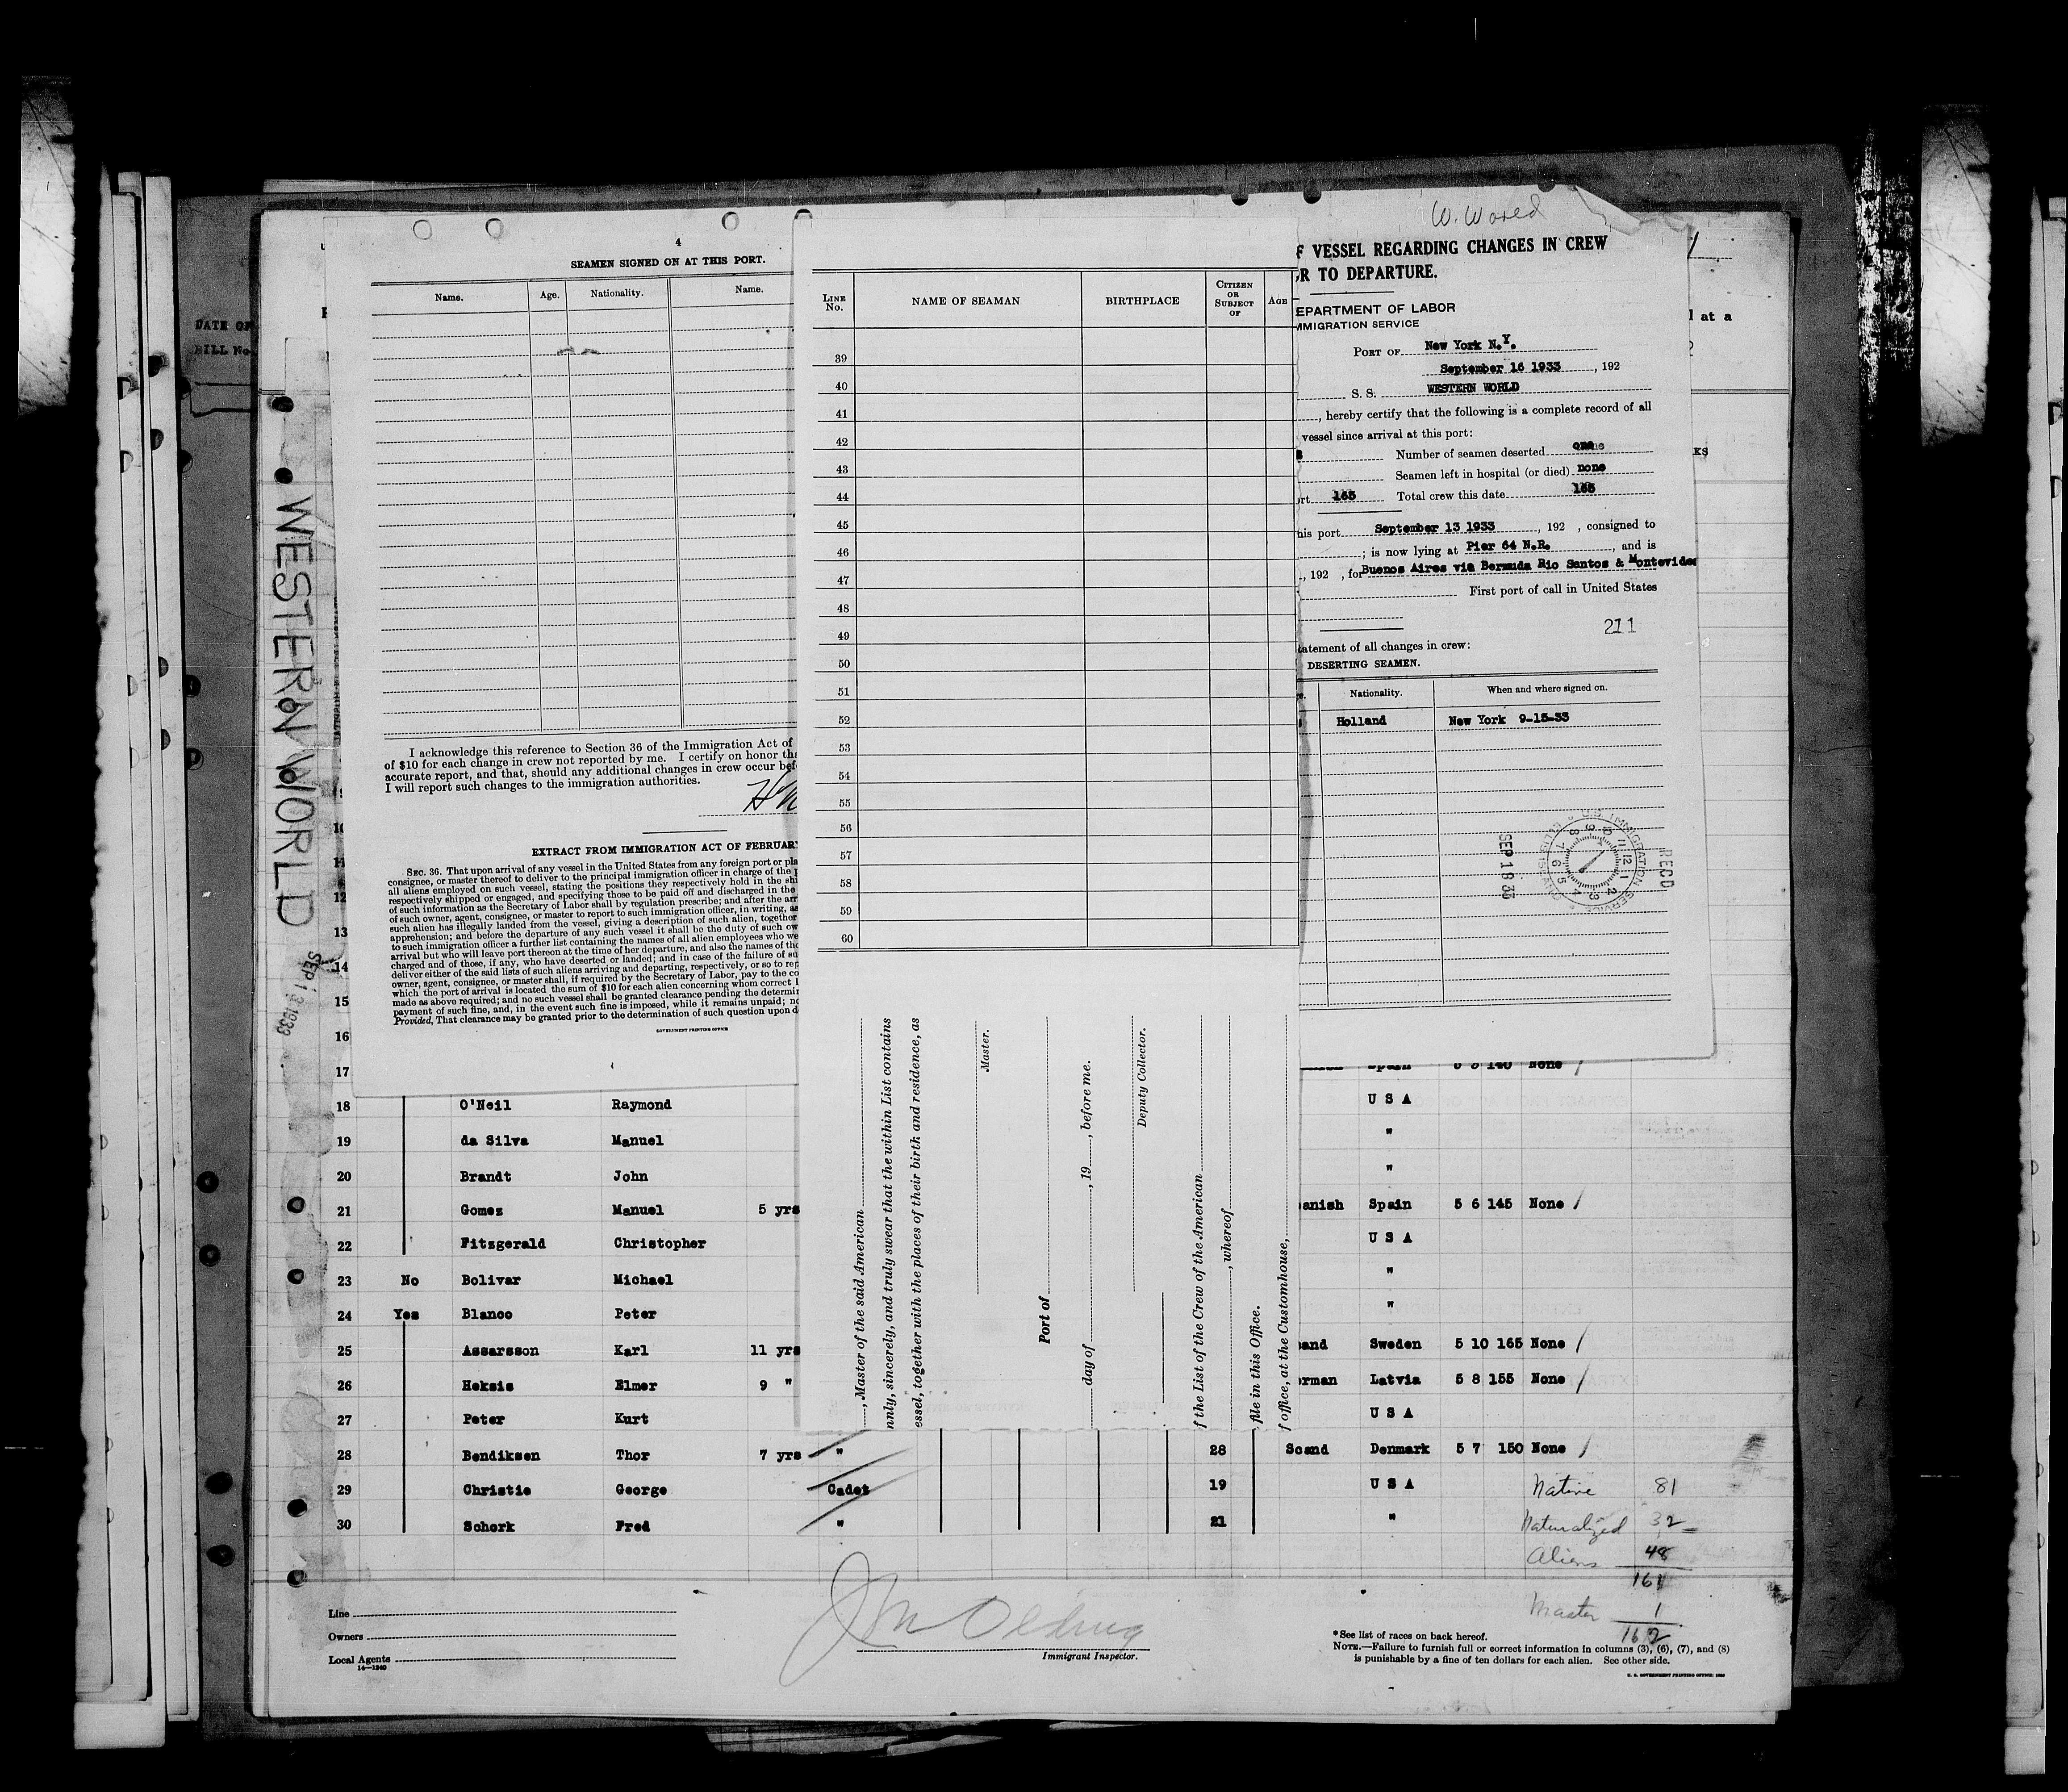 W. World
DATE OF
BILL No.
WESTERN WORLD
SEP 13 1933
4
SEAMEN SIGNED ON AT THIS PORT.
Name. Age. Nationality. Name.
I acknowledge this reference to Section 36 of the Immigration Act of
of $10 for each change in crew not reported by me. I certify on honor tha
accurate report, and that, should any additional changes in crew occur bef
I will report such changes to the immigration authorities.
EXTRACT FROM IMMIGRATION ACT OF FEBRUAR
SEC. 36. That upon arrival of any vessel in the United States from any foreign port or pla
consignee, or master thereof to deliver to the principal immigration officer in charge of the p
all aliens employed on such vessel, stating the positions they respectively hold in the shi
respectively shipped or engaged, and specifying those to be paid off and discharged in the
of such information as the Secretary of Labor shall by regulation prescribe; and after the arr
of such owner, agent, consignee, or master to report to such immigration officer, in writing, as
such alien has illegally landed from the vessel, giving a description of such alien, together
apprehension; and before the departure of any such vessel it shall be the duty of such ow
to such immigration officer a further list containing the names of all alien employees who we
arrival but who will leave port thereon at the time of her departure, and also the names of tho
charged and of those, if any, who have deserted or landed; and in case of the failure of su
deliver either of the said lists of such aliens arriving and departing, respectively, or so to rep
owner, agent, consignee, or master shall, if required by the Secretary of Labor, pay to the co
which the port of arrival is located the sum of $10 for each alien concerning whom correct l
made as above required; and no such vessel shall be granted clearance pending the determin
payment of such fine, and, in the event such fine is imposed, while it remains unpaid; no
Provided, That clearance may be granted prior to the determination of such question upon d
GOVERNMENT PRINTING OFFICE
LINE No. NAME OF SEAMAN BIRTHPLACE CITIZEN OR SUBJECT OF AGE
39
40
41
42
43
44
45
46
47
48
49
50
51
52
53
54
55
56
57
58
59
60
, Master of the said American
nnly, sincerely, and truly swear that the within List contains
essel, together with the places of their birth and residence, as
Master.
Port of
day of , 19 , before me.
Deputy Collector.
f the List of the Crew of the American
, whereof
file in this Office.
f office, at the Customhouse,
F VESSEL REGARDING CHANGES IN CREW
R TO DEPARTURE.
EPARTMENT OF LABOR
MMIGRATION SERVICE
PORT OF New York N.Y.
September 16 1933 , 192
S. S. WESTERN WORLD
, hereby certify that the following is a complete record of all
vessel since arrival at this port:
Number of seamen deserted one
Seamen left in hospital (or died) none
rt 165 Total crew this date 165
his port September 13 1933 , 192 , consigned to
; is now lying at Pier 64 N.R. , and is
, 192 , for Buenos Aires via Bermuda Rio Santos & Montevideo
First port of call in United States
211
tatement of all changes in crew:
DESERTING SEAMEN.
Nationality. When and where signed on.
Holland New York 9-15-33
SEP 18 33
U.S. IMMIGRATION SERVICE
RECD
l at a
KS
12
13
14
15
16
17 Spain 140 None /
18 O'Neil Raymond U S A
19 da Silva Manuel "
20 Brandt John "
21 Gomez Manuel 5 yrs anish Spain 5 6 145 None /
22 Fitzgerald Christopher U S A
23 No Bolivar Michael "
24 Yes Blanco Peter "
25 Assarsson Karl 11 yrs cand Sweden 5 10 165 None /
26 Heksis Elmer 9 " erman Latvia 5 8 155 None /
27 Peter Kurt U S A
28 Bendiksen Thor 7 yrs " 28 Scand Denmark 5 7 150 None /
29 Christie George Cadet 19 U S A
30 Schork Fred " 21 "
Native 81
Naturalized 32
Aliens 48
161
Master 1
162
Line
Owners
Local Agents
14—1240
Immigrant Inspector.
*See list of races on back hereof.
NOTE.—Failure to furnish full or correct information in columns (3), (6), (7), and (8)
is punishable by a fine of ten dollars for each alien. See other side.